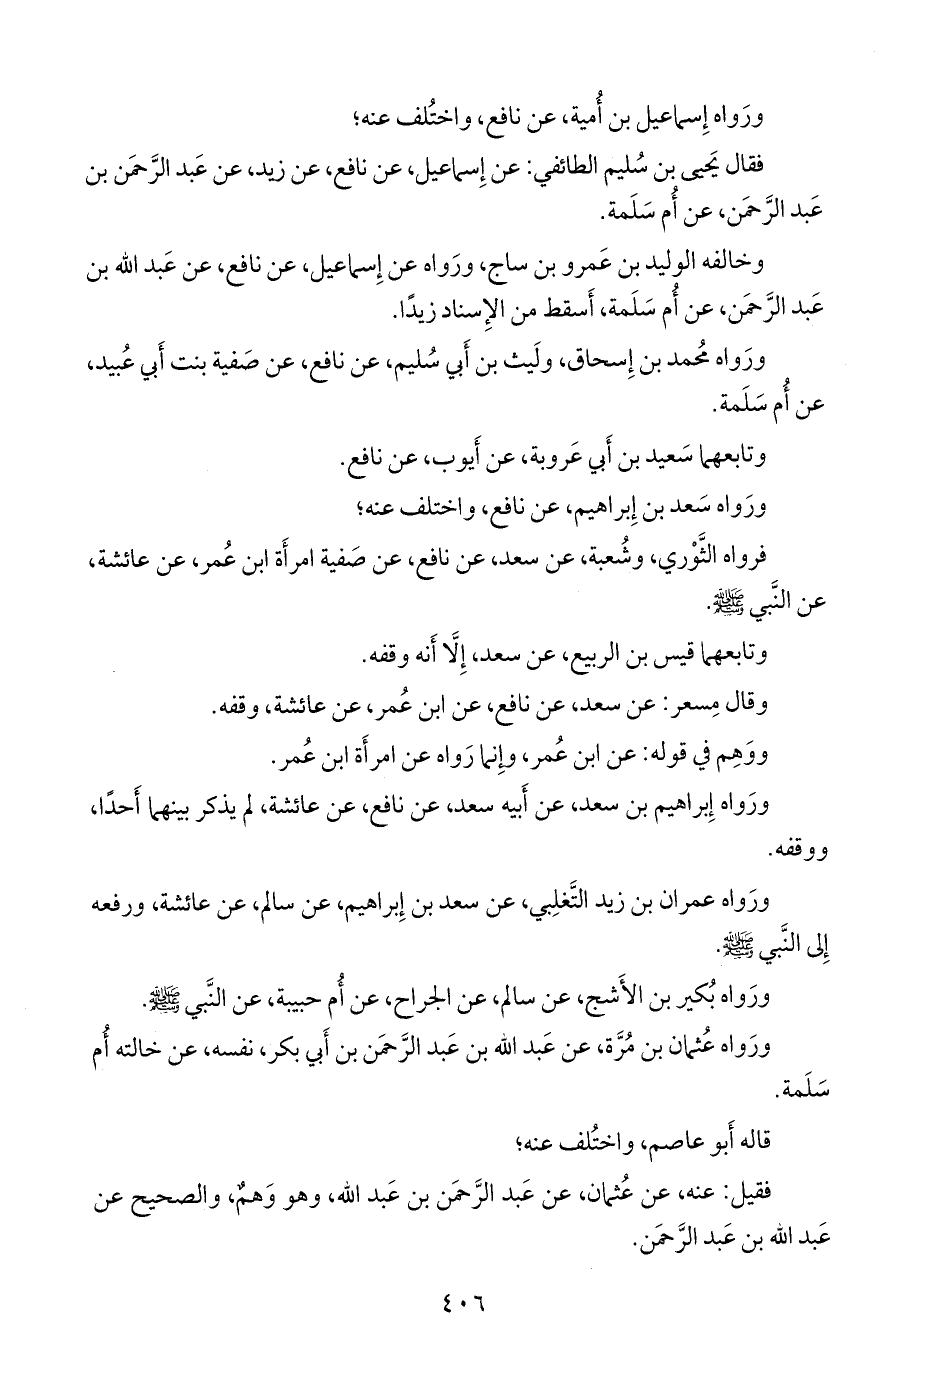 ورَواه إِسماعيل بن أُمية، عن نافع، واختُلف عنه؛
فقال يَحيى بن سُليم الطائفي: عن إِسماعيل، عن نافع، عن زيد، عن عَبد الرَّحمَن بن
عَبد الرَّحمَن، عن أُم سَلَمة.
وخالفه الوليد بن عَمرو بن ساج، ورَواه عن إِسماعيل، عن نافع، عن عَبد الله بن
عَبد الرَّحمَن، عن أُم سَلَمة، أَسقط من الإِسناد زيدًا.
ورَواه مُحمد بن إِسحاق، ولَيث بن أَبي سُليم، عن نافع، عن صَفية بنت أَبي عُبيد،
عن أُم سَلَمة.
وتابعهما سَعيد بن أَبي عَروبة، عن أَيوب، عن نافع.
ورَواه سَعد بن إِبراهيم، عن نافع، واختلف عنه؛
فرواه الثَّوْري، وشُعبة، عن سعد، عن نافع، عن صَفية امرأَة ابن عُمر، عن عائشة،
عن النَّبي ﷺ.
وتابعهما قيس بن الربيع، عن سعد، إِلَّا أَنه وقفه.
وقال مِسعر: عن سعد، عن نافع، عن ابن عُمر، عن عائشة، وقفه.
ووَهِم في قوله: عن ابن عُمر، وإِنما رَواه عن امرأَة ابن عُمر.
ورَواه إِبراهيم بن سعد، عن أَبيه سعد، عن نافع، عن عائشة، لم يذكر بينهما أَحدًا،
ووقفه.
ورَواه عمران بن زيد التَّغلِبي، عن سعد بن إِبراهيم، عن سالم، عن عائشة، ورفعه
إِلى النَّبي ﷺ.
ورَواه بُكير بن الأَشج، عن سالم، عن الجراح، عن أُم حبيبة، عن النَّبي ﷺ.
ورَواه عُثمان بن مُرَّة، عن عَبد الله بن عَبد الرَّحمَن بن أَبي بكر، نفسه، عن خالته أُم
سَلَمة.
قاله أَبو عاصم، واختُلف عنه؛
فقيل: عنه، عن عُثمان، عن عَبد الرَّحمَن بن عَبد الله، وهو وَهمٌ، والصحيح عن
عَبد الله بن عَبد الرَّحمَن.
٤٠٦